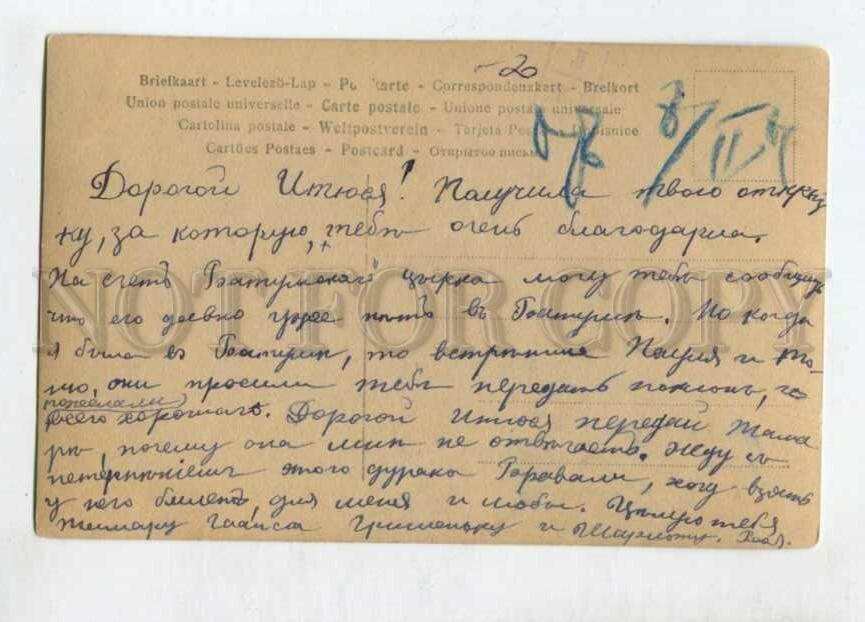 -20
Briefkaart - Levelező-Lap - Po karte - Correspondenzkart - Brefkort
Union postale universelle - Carte postale - Unione postale universale
Cartolina postale - Weltpostverein - Tarjeta Pos Dopisnice
Cartões Postaes - Postcard - Открытое письмо
8/II
Дорогой Итюся! Получила твого открыт
ку, за которую, тебѣ очень благодарна.
На счетъ Батумскаго цырка могу тебѣ сообщить
что его давно уже нѣтъ въ Батумѣ. Но когда
я была въ Батумѣ, то встрѣтила и То-
лю, они просили тебѣ передать поклонъ,
пожелали
всего хорошаго. Дорогой Итюся передай Тама
рѣ, почему она мнѣ не отвѣчаетъ. Жду съ
нетерпѣніемъ этого дурака хочу взять
у него билетъ, для меня и Любы. Цѣлую тебя
Тамару Гришеньку и Шарлоту.
NOT FOR COPY